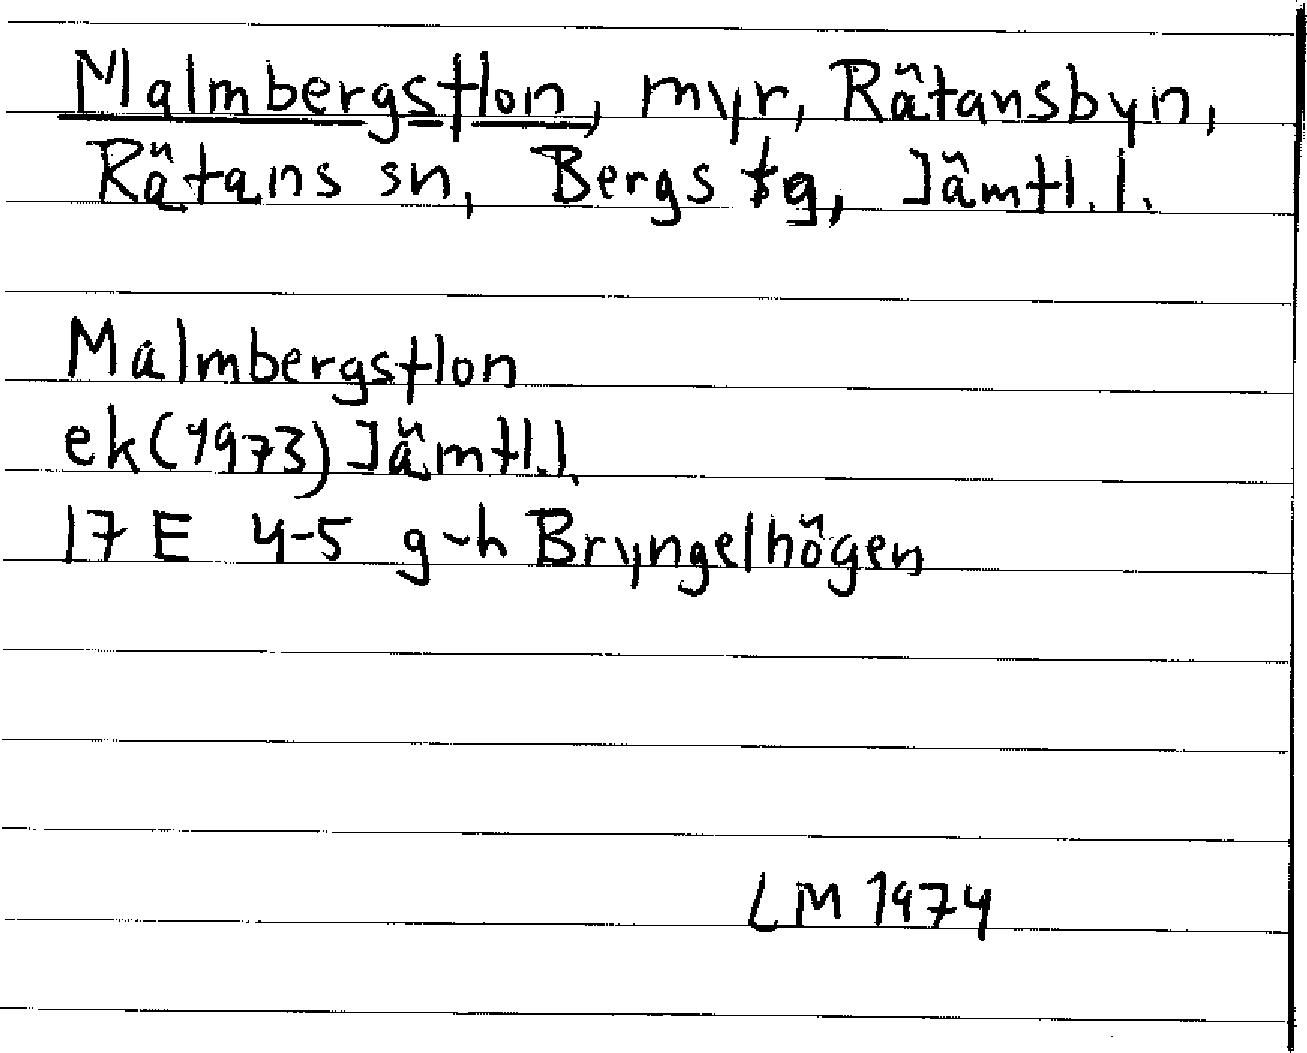 Malmbergstlon, myr, Rätansbyn,
Rätans sn, Bergs tg, Jämtl. l.
Malmbergstlon
ek (1973) Jämtl. l.
17 E 4-5 g-h Bryngelhögen
LM 1974